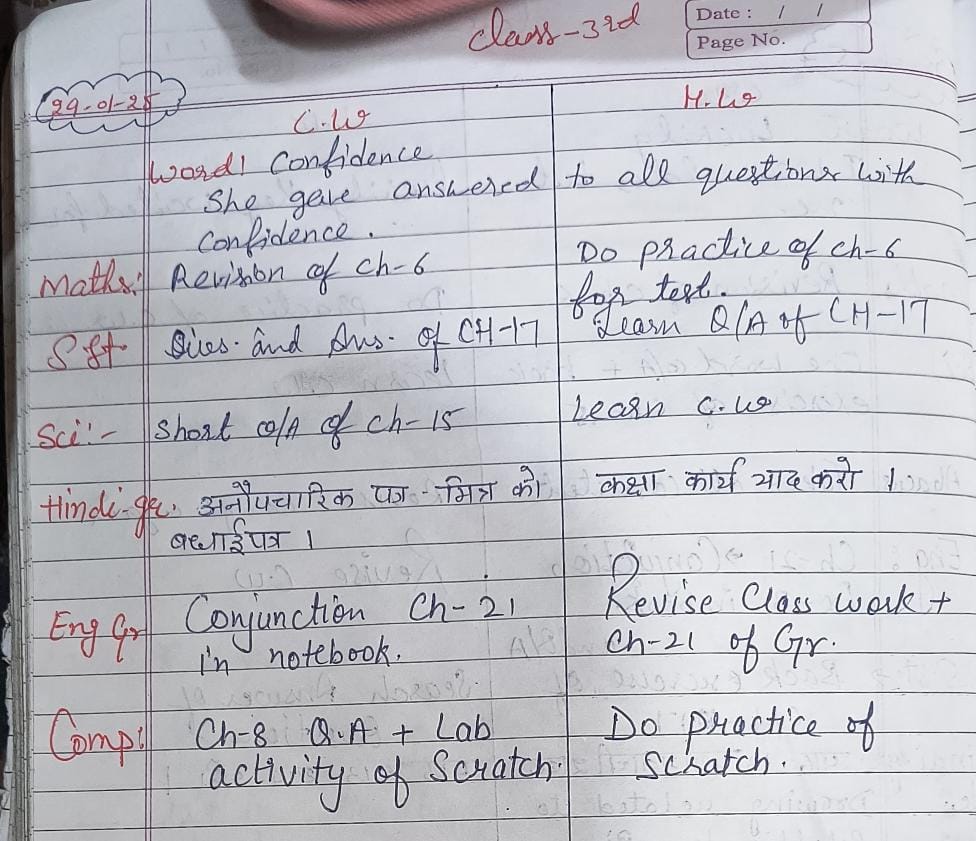 Class-3rd
Date : / /
Page No.
29-01-25
C.W H.W
Word! Confidence
She gave answered to all questions with
Confidence.
Maths: Revision of ch-6 Do practice of ch-6
for test.
S.St. Ques. and Ans. of CH-17 Learn Q/A of CH-17
Sci:- Short Q/A of ch-15 Learn C.W
Hindi-gr. अनौपचारिक पत्र - मित्र को कक्षा कार्य याद करो ।
बधाईपत्र ।
Eng Gr Conjunction Ch-21 Revise Class work +
in notebook. Ch-21 of Gr.
Comp: Ch-8 Q.A + Lab Do practice of
activity of Scratch. Scratch.